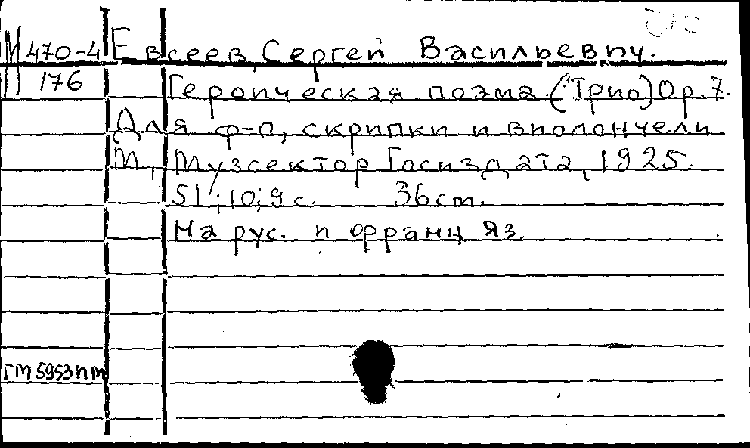 М 470-4 Евсеев, Сергей Васильевич.
176 Героическая поэма (Трио) Op. 7.
Для ф-п, скрипки и виолончели
М., Музсектор Госиздата, 1925.
51; 10; 9 с. 36 см.
На рус. и франц яз.
ГМ 5953 пм